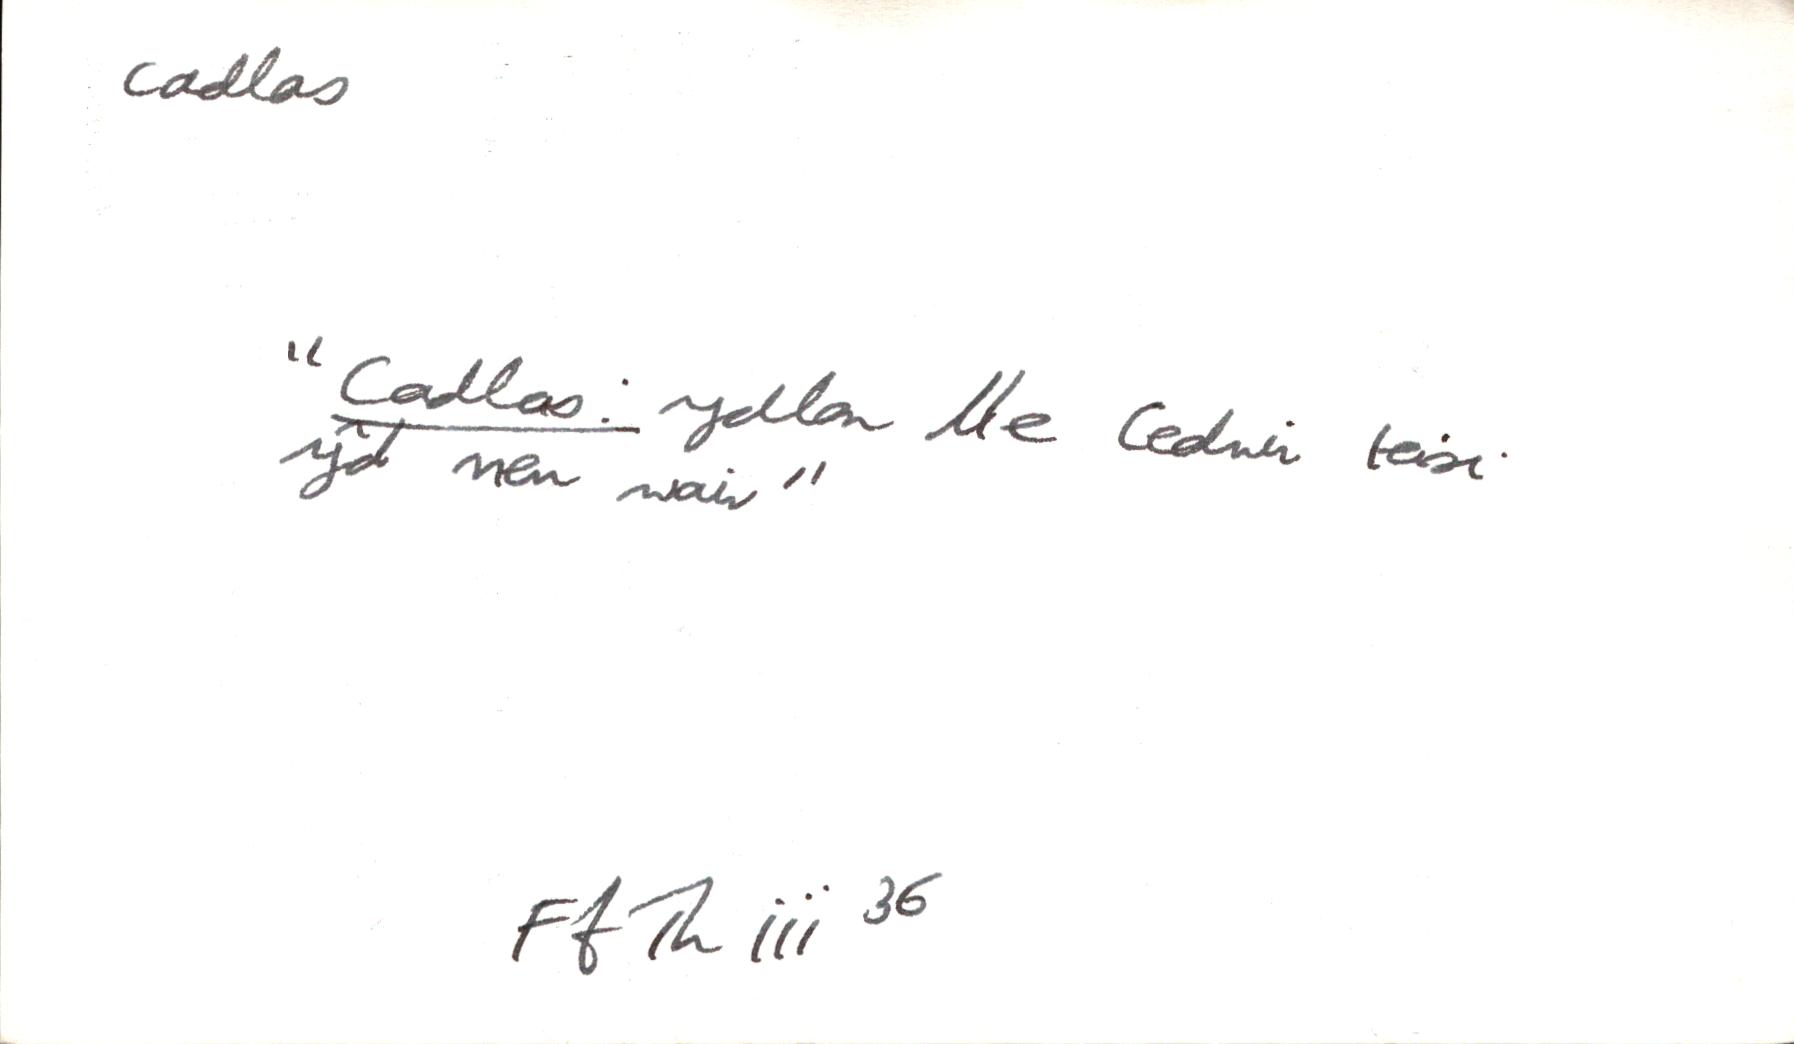 cadlas
"Cadlas: ydlan lle cedwir teisi
ŷd neu wair"
Ff Th iii 36